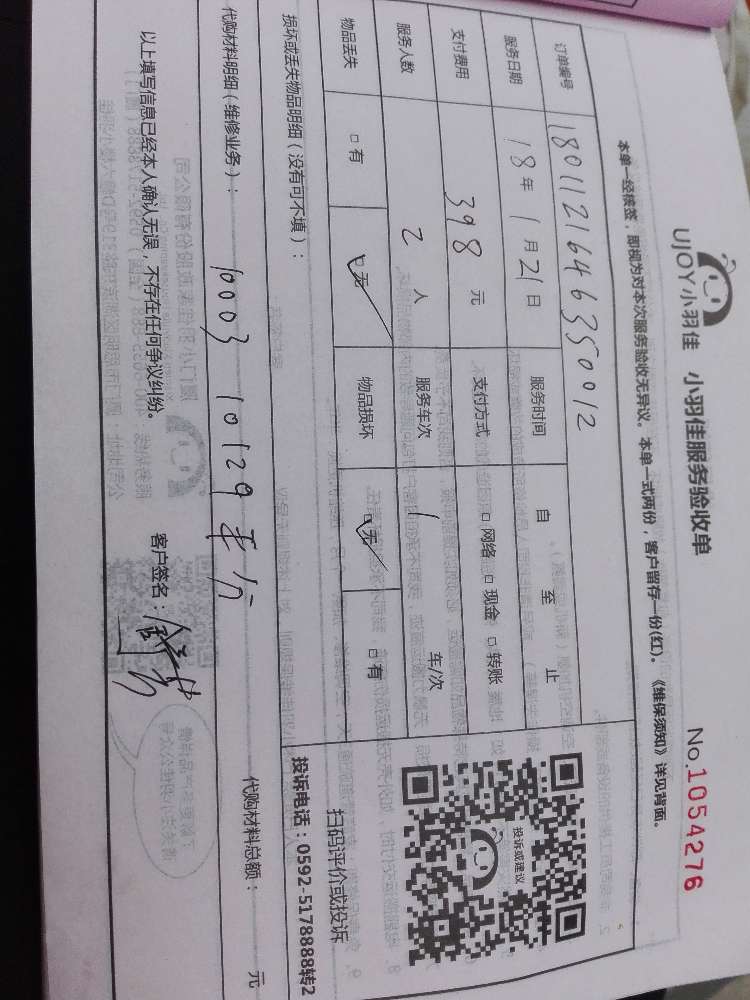 UJOY小羽佳 小羽佳服务验收单
No.1054276
本单一经核签，即视为对本次服务验收无异议。本单一式两份，客户留存一份(红)。《维保须知》详见背面。
订单编号 1801121646350012
服务日期 18年1月21日 服务时间 自 至 止
支付费用 398元 支付方式 □网络 □现金 □转账
服务人数 2人 服务车次 1 车/次
物品丢失 □有 □无 物品损坏 □无 □有
投诉或建议
扫码评价或投诉
投诉电话：0592-5178888转2
损坏或丢失物品明细（没有可不填）：
代购材料明细（维修业务）： 10003 10129
代购材料总额： 元
以上填写信息已经本人确认无误，不存在任何争议纠纷。
客户签名：